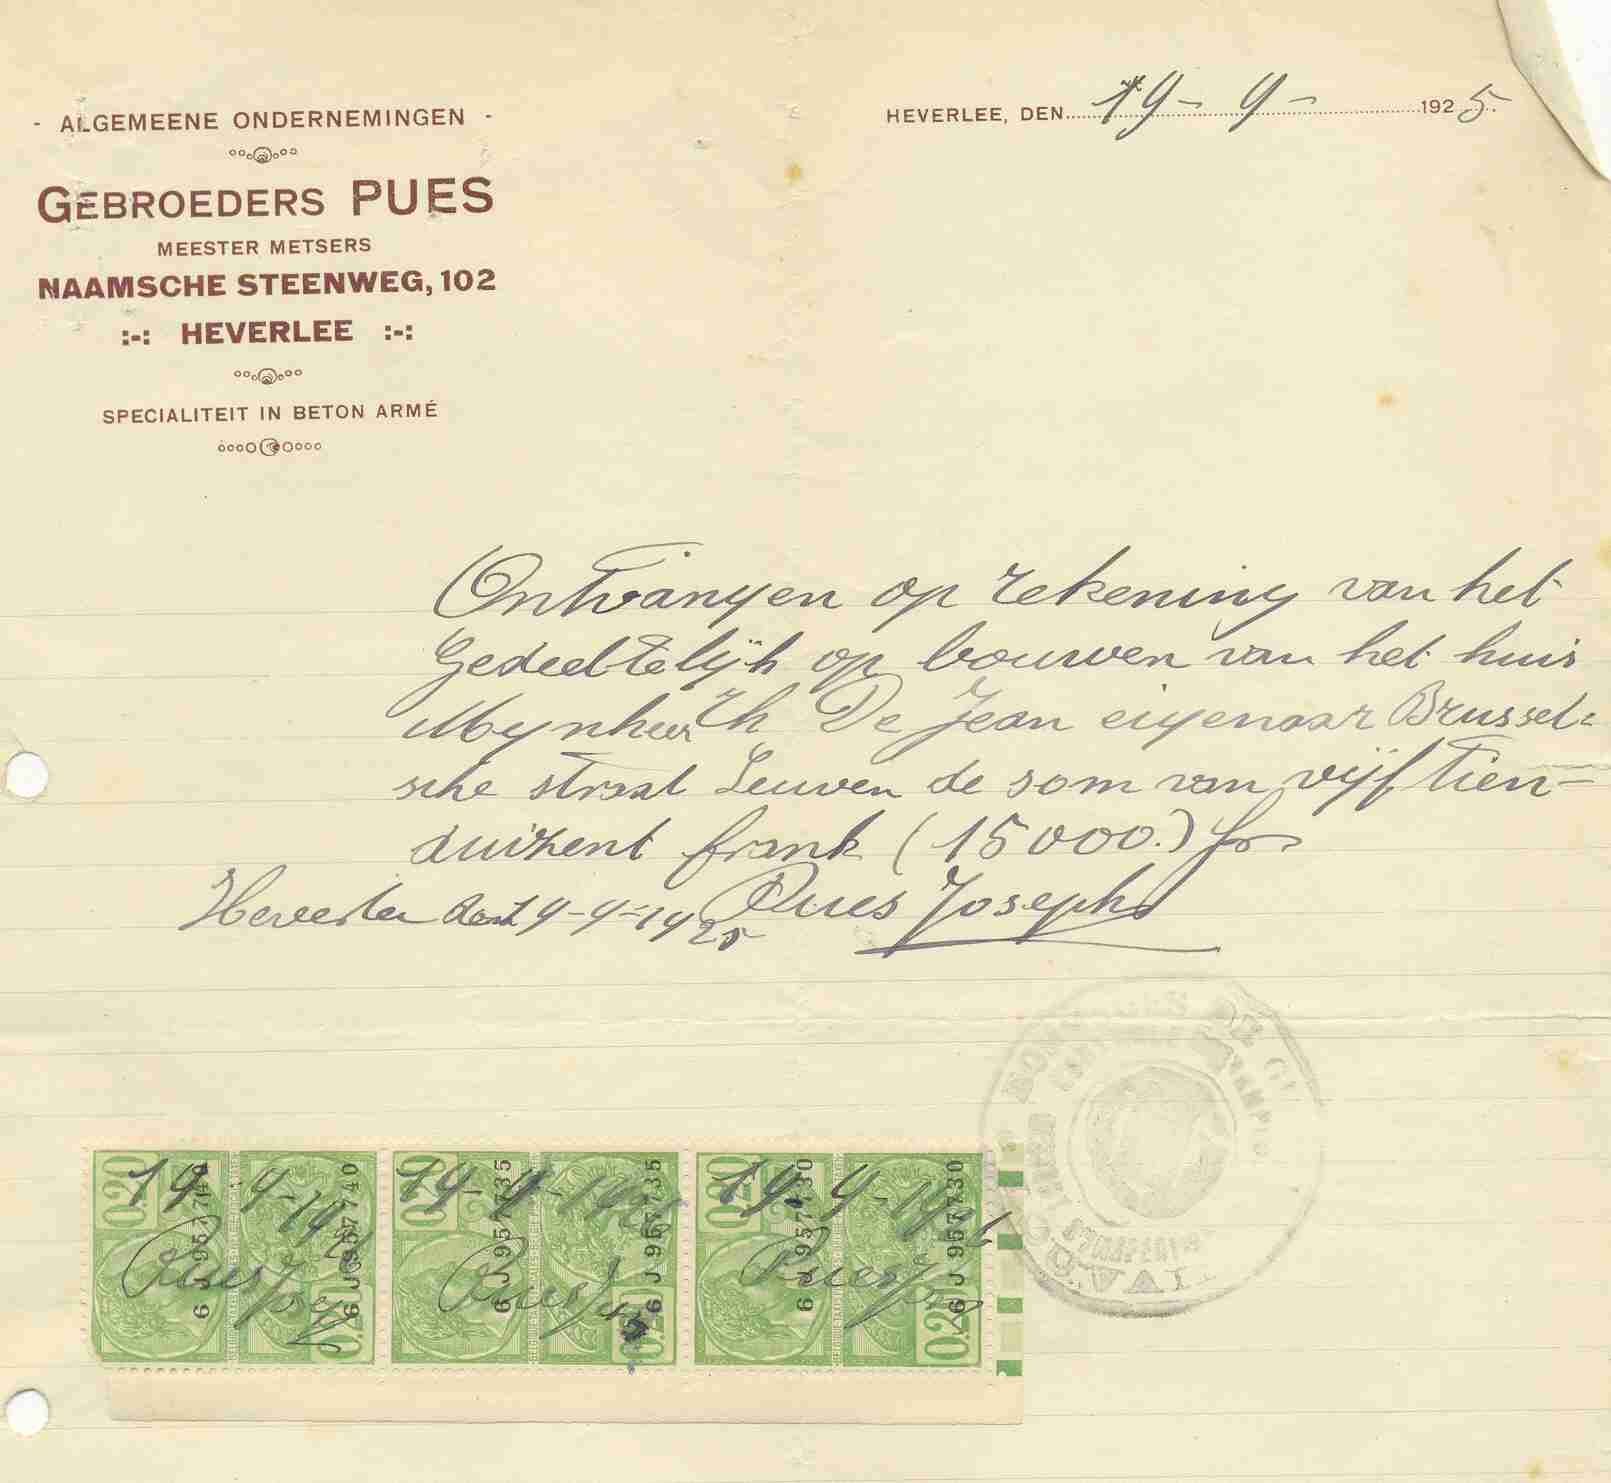 - ALGEMEENE ONDERNEMINGEN -
GEBROEDERS PUES
MEESTER METSERS
NAAMSCHE STEENWEG, 102
:-: HEVERLEE :-:
SPECIALITEIT IN BETON ARMÉ
HEVERLEE, DEN 19 - 9 - 1925.
Ontvangen op rekening van het
Gedeeltelijk op bouwen van het huis
Mynheer Th De Jean eigenaar Brussel=
sche straat Leuven de som van vijftien-
duizent frank (15000.) fr
Heverlee den 19-9-1925 Pues Joseph
0.20 6 J 957740 6 J 957740 0.20
0.20 6 J 957735 6 J 957735 0.20
0.20 6 J 957730 6 J 957730 0.20
19-9-1925
Pues Joseph
19-9-1925
Pues Jos
19-9-1925
Pues Jos